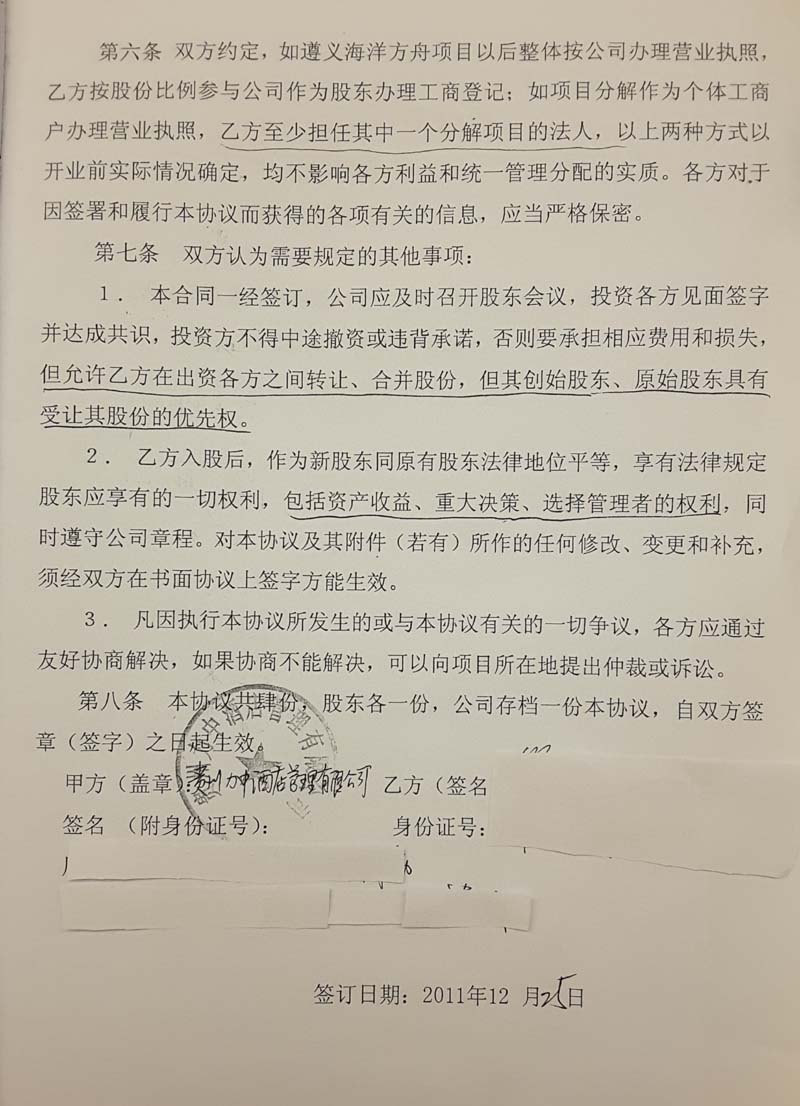 第六条 双方约定，如遵义海洋方舟项目以后整体按公司办理营业执照，
乙方按股份比例参与公司作为股东办理工商登记；如项目分解作为个体工商
户办理营业执照，乙方至少担任其中一个分解项目的法人，以上两种方式以
开业前实际情况确定，均不影响各方利益和统一管理分配的实质。各方对于
因签署和履行本协议而获得的各项有关的信息，应当严格保密。
第七条 双方认为需要规定的其他事项：
１． 本合同一经签订，公司应及时召开股东会议，投资各方见面签字
并达成共识，投资方不得中途撤资或违背承诺，否则要承担相应费用和损失，
但允许乙方在出资各方之间转让、合并股份，但其创始股东、原始股东具有
受让其股份的优先权。
２． 乙方入股后，作为新股东同原有股东法律地位平等，享有法律规定
股东应享有的一切权利，包括资产收益、重大决策、选择管理者的权利，同
时遵守公司章程。对本协议及其附件（若有）所作的任何修改、变更和补充，
须经双方在书面协议上签字方能生效。
３． 凡因执行本协议所发生的或与本协议有关的一切争议，各方应通过
友好协商解决，如果协商不能解决，可以向项目所在地提出仲裁或诉讼。
第八条 本协议共肆份，股东各一份，公司存档一份本协议，自双方签
章（签字）之日起生效。
甲方（盖章）： 酒店管理有限公司 乙方（签名
签名 （附身份证号）： 身份证号：
签订日期：2011年12 月25日